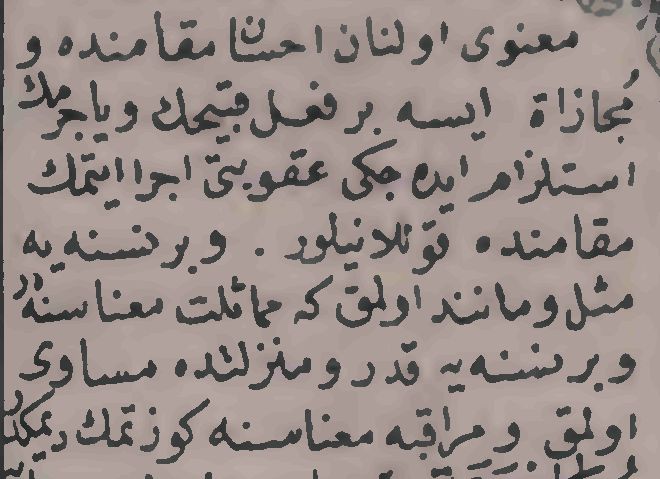 معنوى اولنان احسان مقامنده و
مُجازاة ايسه بر فعل قبيحك وياجرمك
استلزام ايده جكى عقوبتى اجرا ايتمك
مقامنده قوللانيلور . و بر نسنه يه
مثل و مانند اولمق كه مماثلت معناسنه در
و بر نسنه يه قدر و منزلتده مساوى
اولمق و مراقبه معناسنه كوزتمك ديمكدر